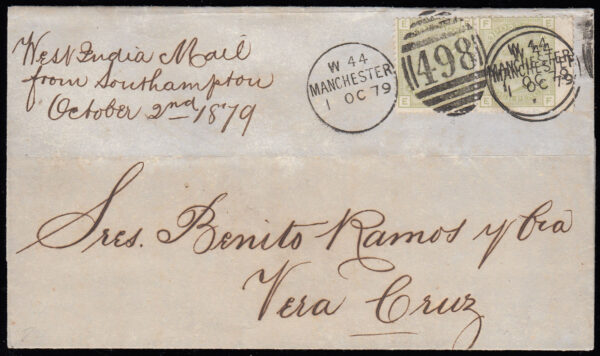 West India Mail
from Southampton
October 2nd 1879
W 44
MANCHESTER
1 OC 79
498
W 44
MANCHESTER
1 OC 79
E
F
E
E
F
F
Sres. Benito Ramos y Cia
Vera Cruz